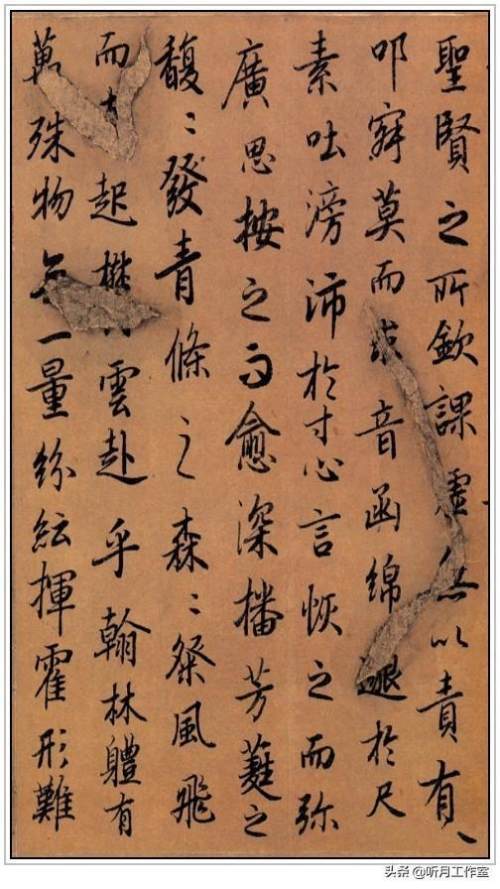 聖賢之所欽課虛無以責有
叩寂莫而求音函綿邈於尺
素吐滂沛於寸心言恢之而弥
廣思按之而愈深播芳蕤之
馥〻發青條之森〻粲風飛
而起雲赴乎翰林軆有
萬殊物無一量紛紜揮霍形難
头条 @听月工作室